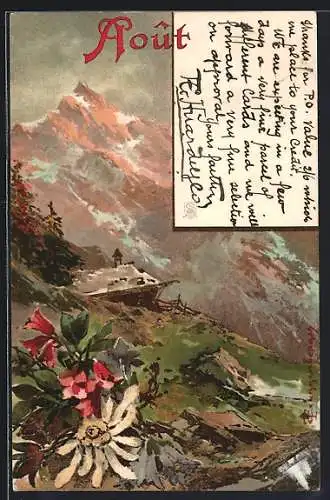 Août
Thanks for P.O. value 2/6 which
we place to your Credit.
We are expecting in a few
days a very fine parcel of
different Cards and we will
forward a very fine selection
on approval
yours faithfully